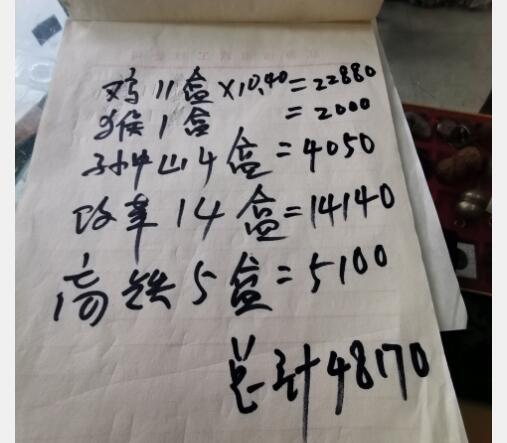 鸡11盒×10.40=22880
猴1盒=2000
孙中山4盒=4050
改革14盒=14140
高铁5盒=5100
总计48170